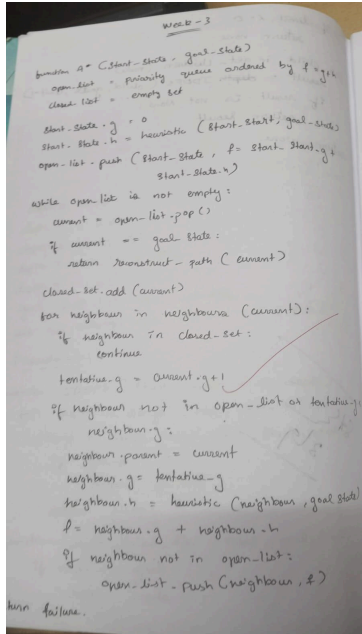 Week - 3
function A* (start-state, goal-state)
open-list = priority queue ordered by f = g+h
closed list = empty set
start-state.g = 0
start-state.h = heuristic (start-start, goal-state)
open-list.push (start-state, f = start-start.g +
start-state.h)
while open list is not empty:
current = open-list.pop()
if current == goal state:
return reconstruct-path (current)
closed-set.add (current)
for neighbour in neighbours (current):
if neighbour in closed-set:
continue
tentative-g = current.g+1
if neighbour not in open-list or tentative-g
neighbour.g:
neighbour.parent = current
neighbour.g = tentative-g
neighbour.h = heuristic (neighbour, goal state)
f = neighbour.g + neighbour.h
if neighbour not in open-list:
open-list-push (neighbour, f)
turn failure.